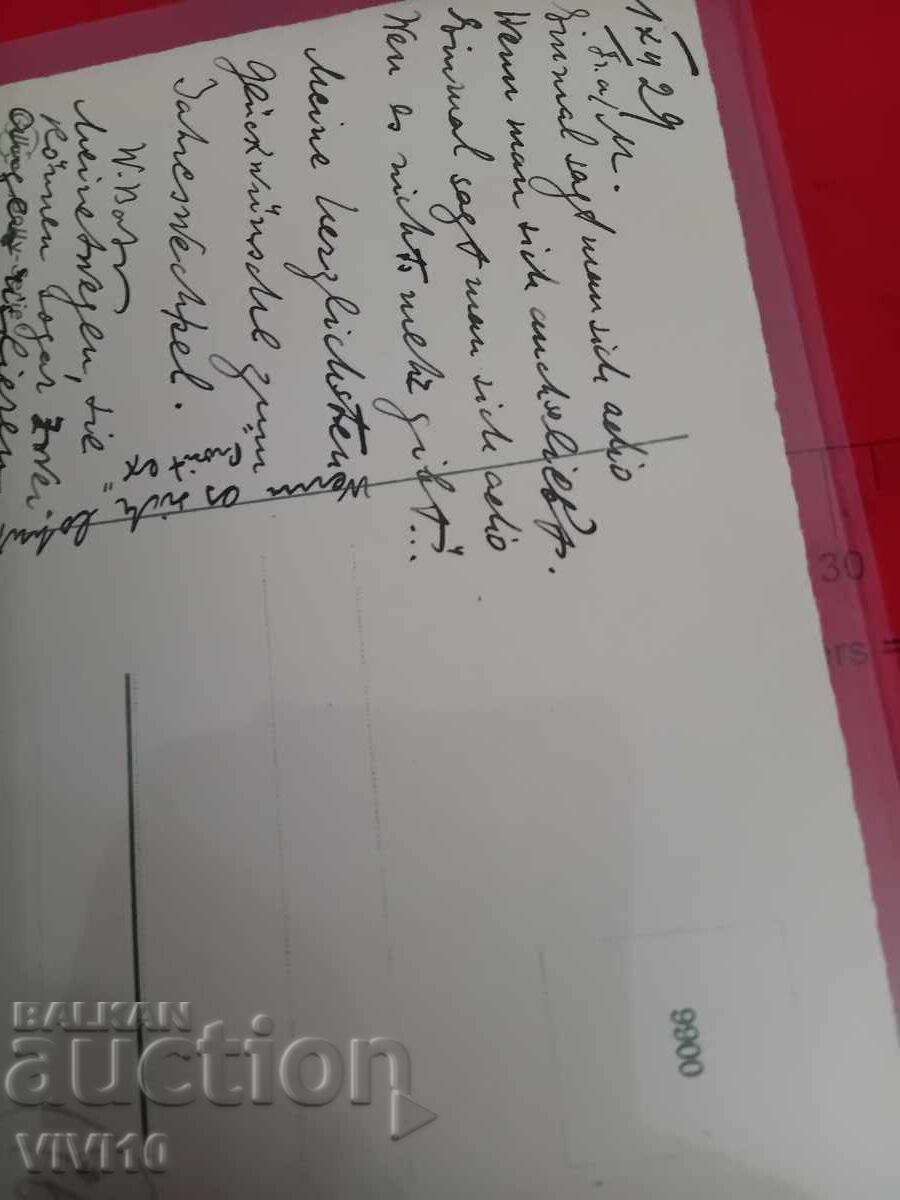 1 XII 29
Fr. a/M.
Einmal sagt man sich adio
Wenn man sich auch liebt.
Einmal sagt man sich adio
Wen es nichts mehr gibt...
Meine herzlichsten
Glückwünsche zum
Jahreswechsel.
Meinetwegen, sie
können sogar zwei
wenn
es sich
30
ers =
0066
BALKAN
auction
VIVI10